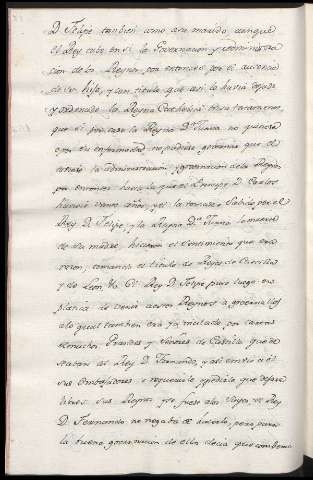 D. Felipe tambien como su marido, aunque
el Rey tubo en si la Governacion, y administra
cion de los Reynos por entonces por el ausencia
de su hija, y con titulo que asi lo havia dejado
y ordenado la Reyna Catholica en su testamento,
que si por caso la Reyna Dª Juana no quisiera
o por su enfermedad no pudiera governar que el
la administracion y governacion de los Reynos
por entonces hasta que el Principe D. Carlos
huviese veinte años, y el
Rey D. Felipe, y la Reyna Dª Juana la muerte
de su madre, hicieron el sentimiento que era
razon, tomaron el titulo de Reyes de Castilla
y de Leon &c. El Rey D. Felipe puso luego en
platica de venir a estos Reynos a governarlos
a lo qual tambien era por cartas
de muchos Grandes y Señores de Castilla que de
al Rey D. Fernando, y asi embio a el
sus Embajadores y requerirle y pedirle que dejase
libres sus Reynos y se fuese a los suyos, el Rey
D. Fernando no negaba de hacerlo, pero para
la buena governacion de ellos decia que combenia